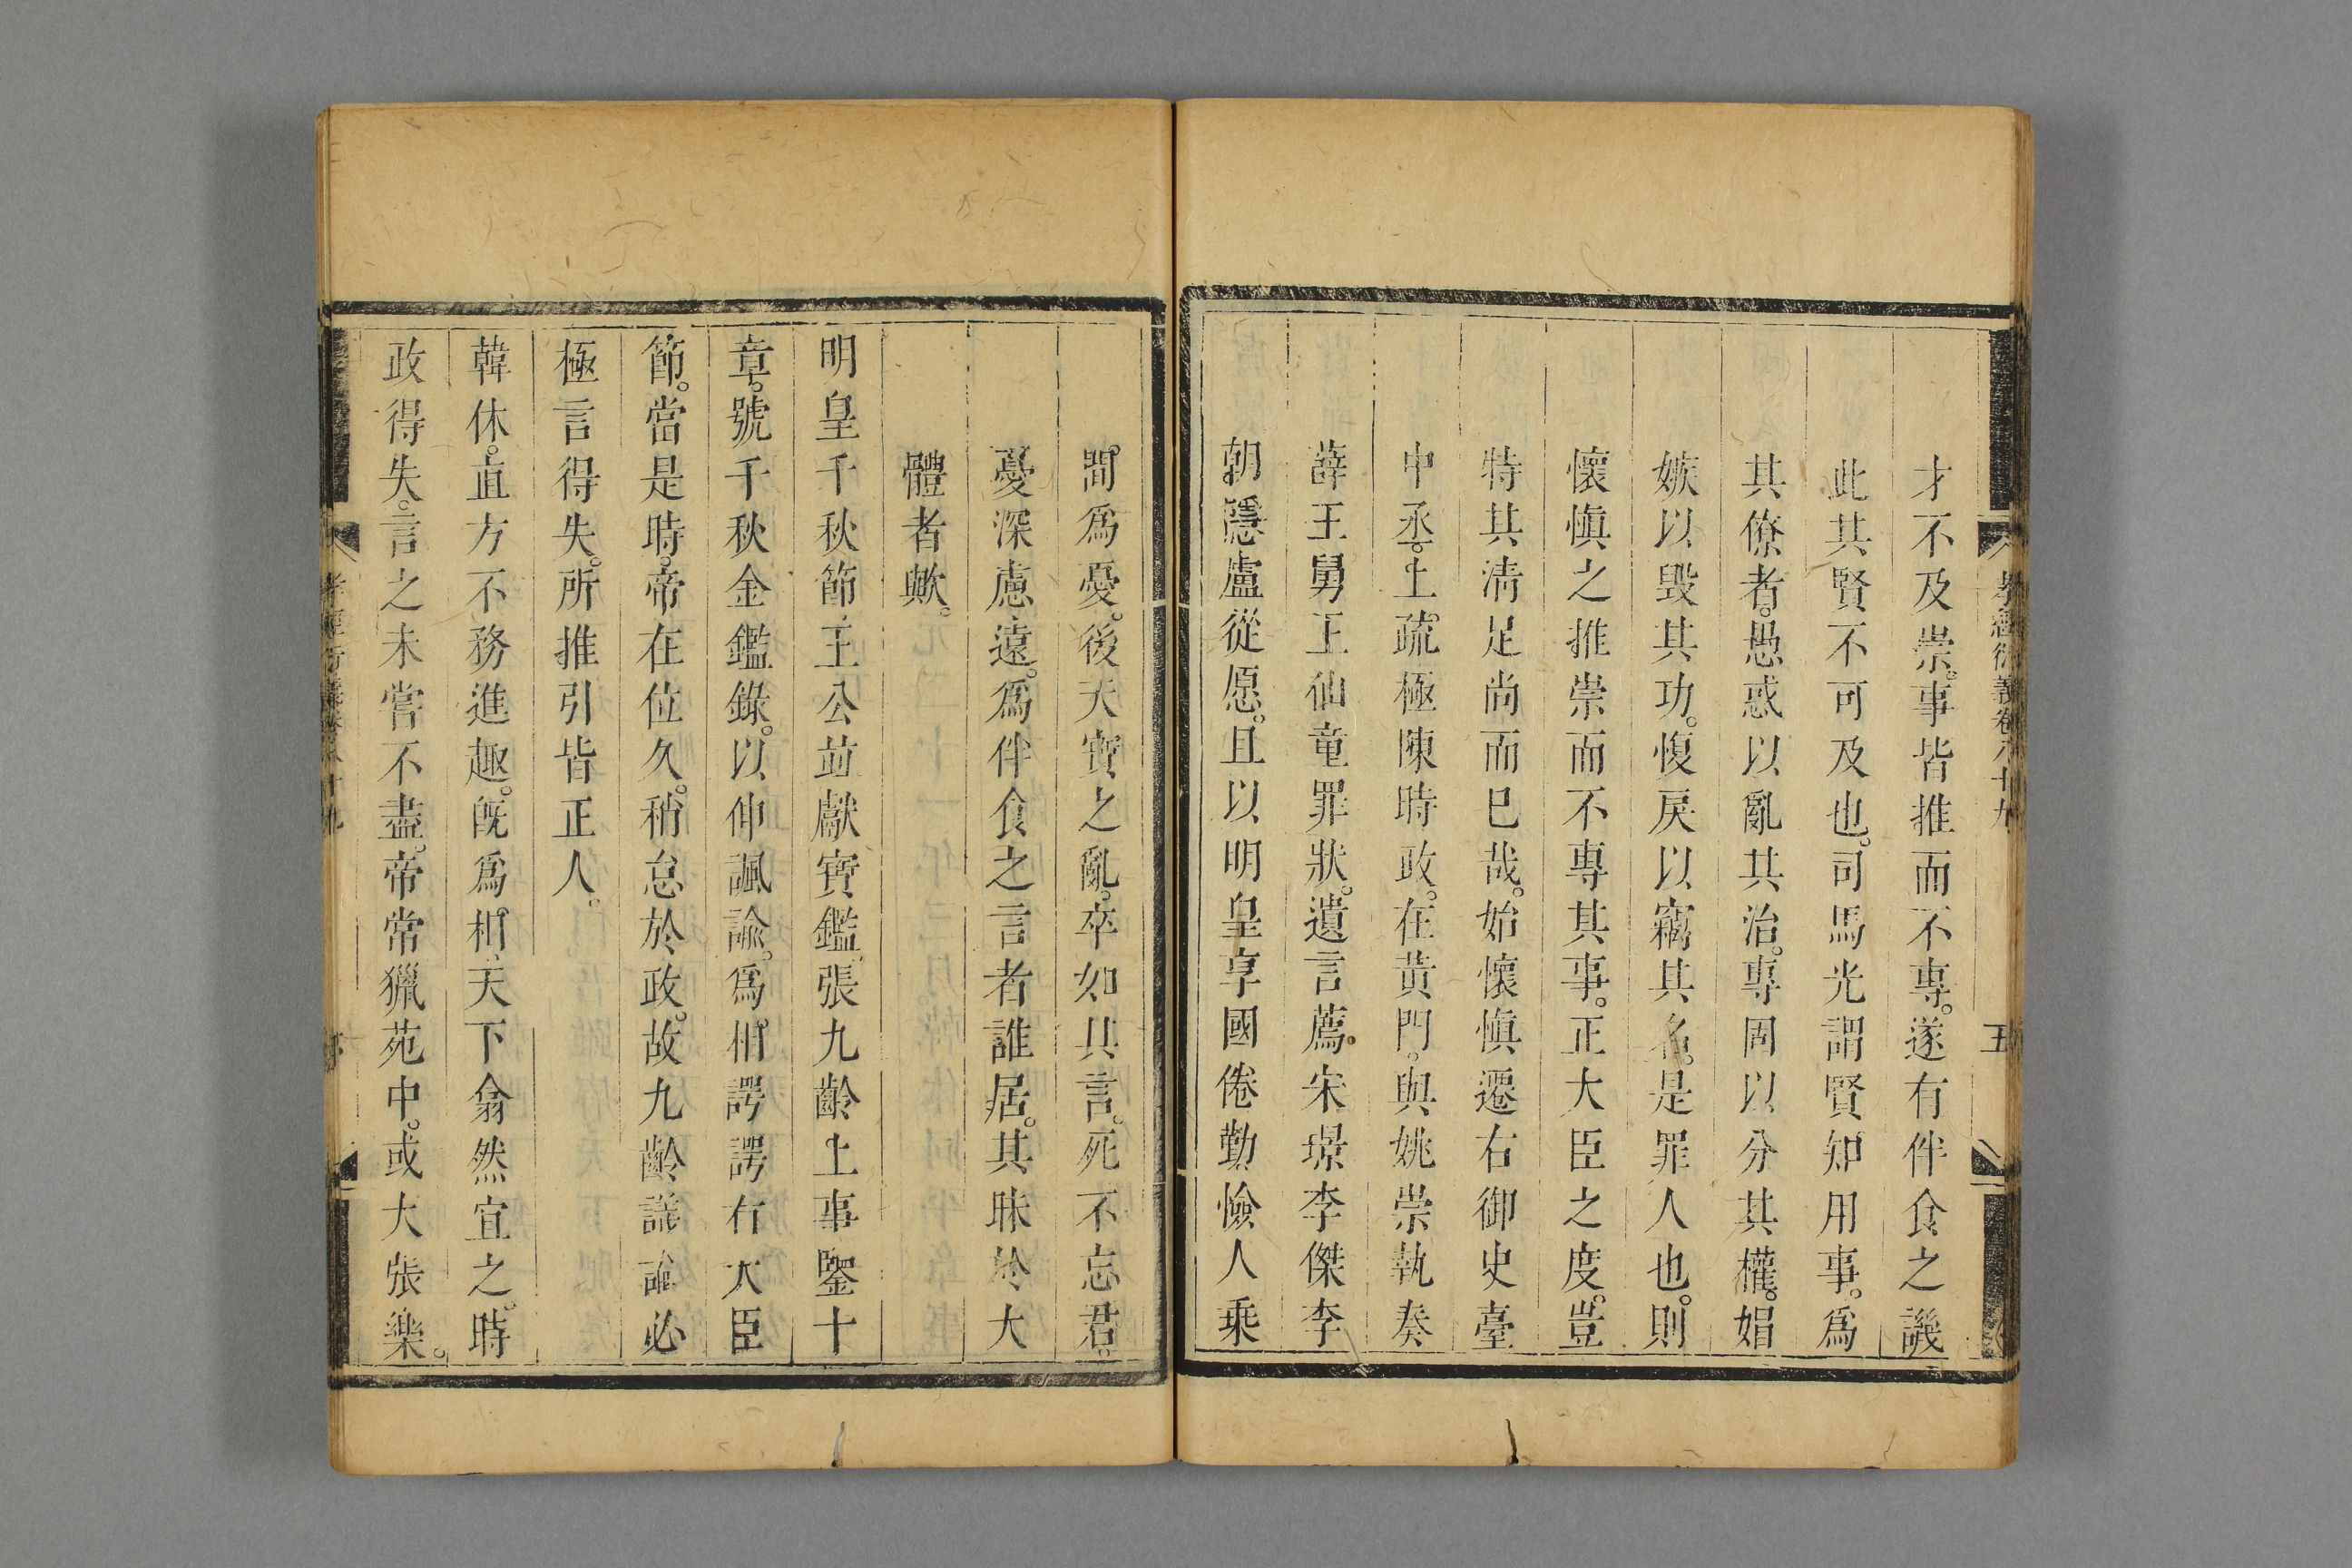 孝經衍義卷六十九
五
才不及崇。事皆推而不專。遂有伴食之譏
此其賢不可及也。司馬光謂賢知用事。爲
其僚者。愚惑以亂其治。專固以分其權。媢
嫉以毀其功。愎戾以竊其名。是罪人也。則
懷愼之推崇而不專其事。正大臣之度。豈
特其淸足尚而已哉。始懷愼遷右御史臺
中丞。上疏極陳時政。在黃門。與姚崇執奏
薛王舅王仙童罪狀。遺言薦。宋璟李傑李
朝隱盧從愿。且以明皇享國倦勤憸人乘
間。爲憂。後天寶之亂。卒如其言。死不忘君。
憂深慮遠。爲伴食之言者誰居。其昧於大
體者歟。
明皇千秋節王公並獻寶鑑。張九齡上事鑒十
章。號千秋金鑑錄。以伸諷諭。爲相諤諤有大臣
節。當是時。帝在位久。稍怠於政。故九齡議論必
極言得失。所推引皆正人。
韓休。直方不務進趣。旣爲相。天下翕然宜之。時
政得失。言之未嘗不盡。帝常獵苑中。或大張樂。